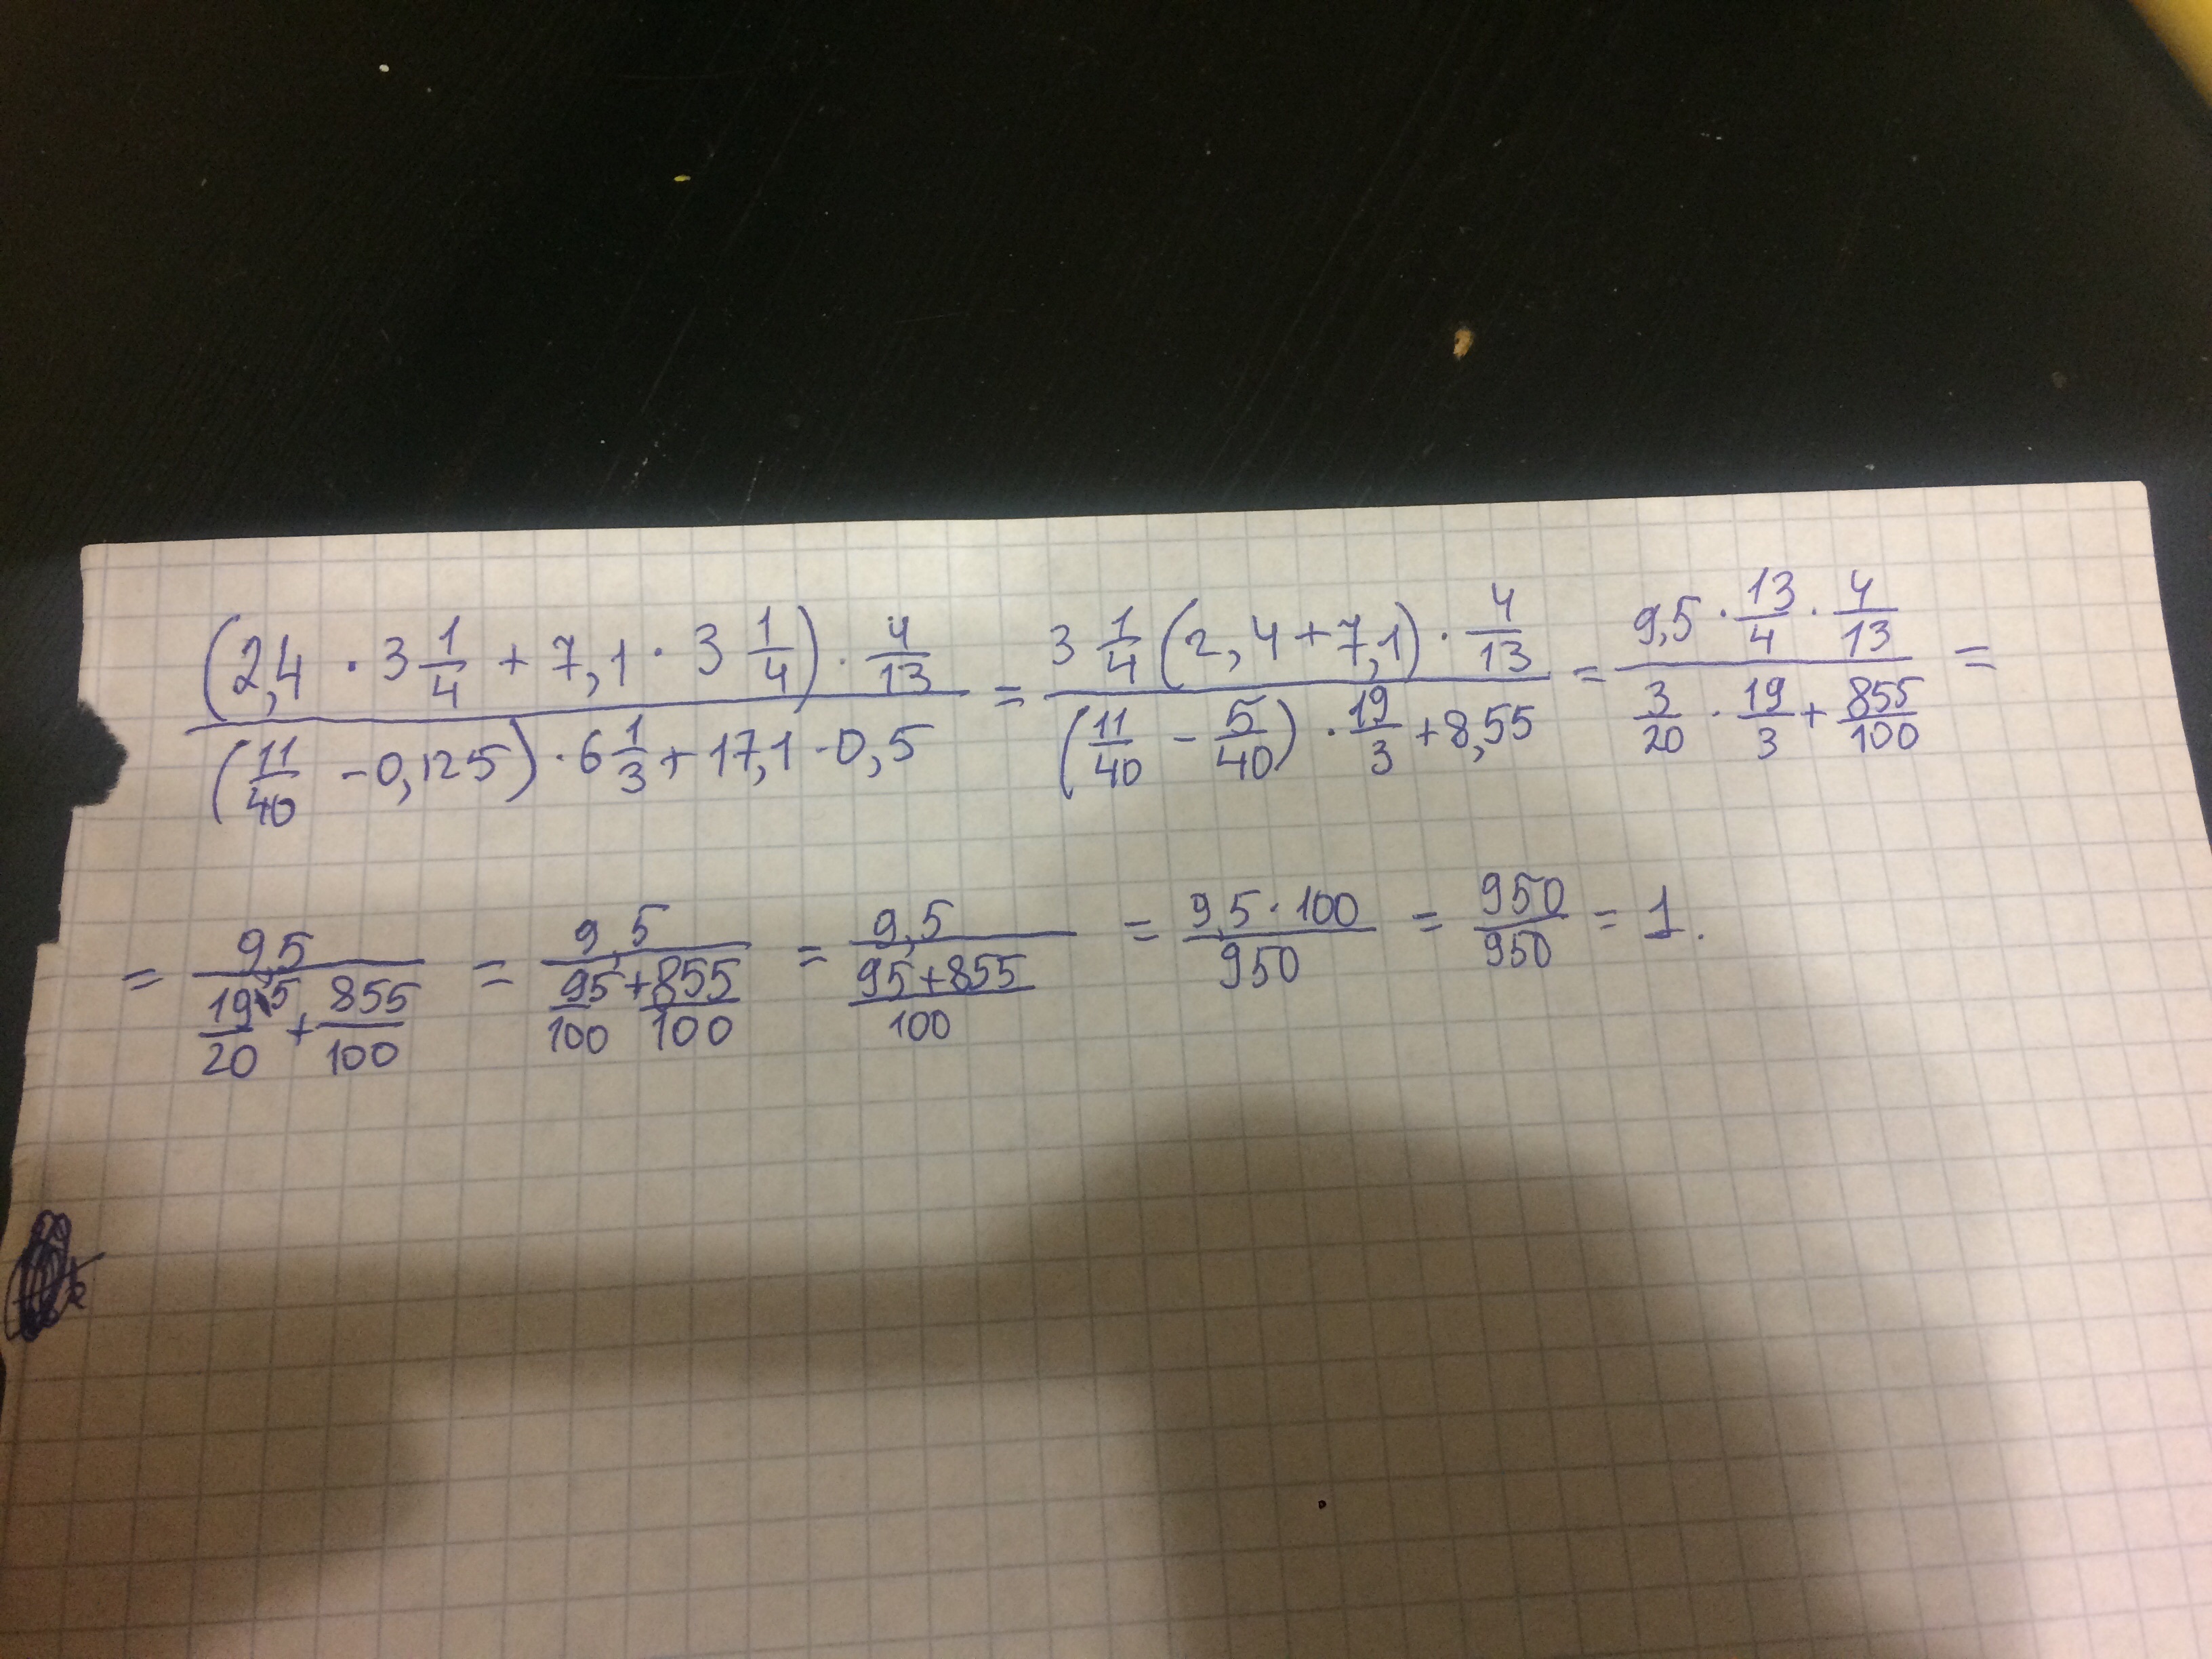 (2,4 · 3 1/4 + 7,1 · 3 1/4) · 4/13 / (11/40 - 0,125) · 6 1/3 + 17,1 · 0,5 = 3 1/4 (2,4 + 7,1) · 4/13 / (11/40 - 5/40) · 19/3 + 8,55 = 9,5 · 13/4 · 4/13 / 3/20 · 19/3 + 855/100 =
= 9,5 / 19·5/20 + 855/100 = 9,5 / 95/100 + 855/100 = 9,5 / 95+855/100 = 9,5·100/950 = 950/950 = 1.